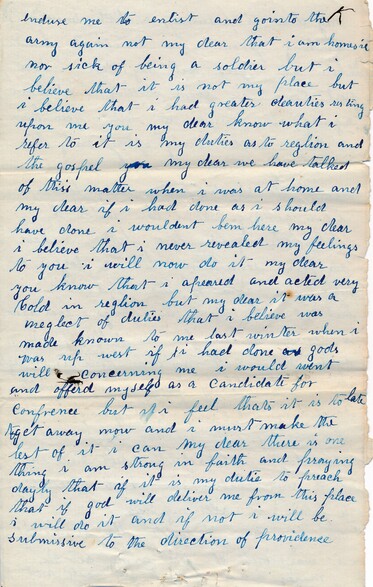 enduse me to enlist and go into that
army again not my dear that i am homesic
nor sick of being a soldier but i
believe that it is not my place but
i believe that i had greater deauties resting
upon me you my dear know what i
refer to it is my duties as to reglion and
the gospel you my dear we have talked
of this matter when i was at home and
my dear if i had done as i should
have done i wouldent bem here my dear
i believe that i never revealed my feelings
to you i will now do it my dear
you know that i apeared and acted very
Cold in reglion but my dear it was a
neglect of duties that i believe was
made known to me last winter when i
was up west if i had done as gods
will concerning me i would went
and offerd myself as a candidate for
Confrence but if i feel thats it is to late
to get away now and i must make the
best of it i can my dear there is one
thing i am strong in faith and praying
dayly that if it is my dutie to preach
that if god will deliver me from this place
i will do it and if not i will be
submissive to the direction of providence